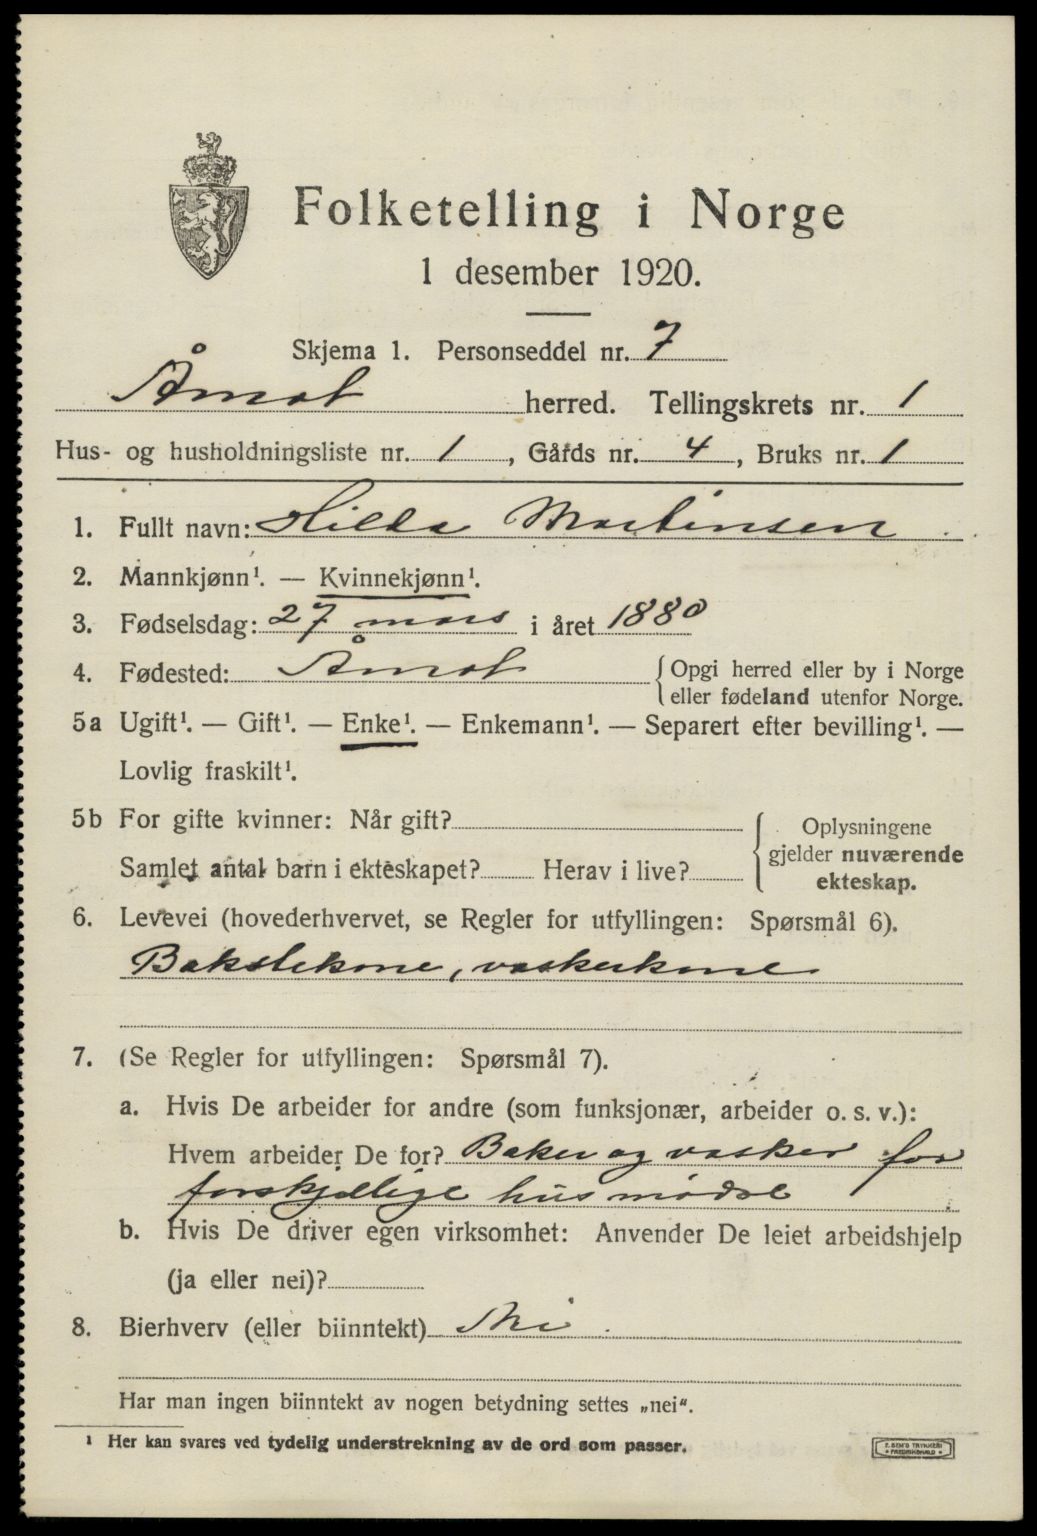 Folketelling i Norge
1 desember 1920.
Skjema 1. Personseddel nr. 7
Åmot herred. Tellingskrets nr. 1
Hus- og husholdningsliste nr. 1, Gårds nr. 4, Bruks nr. 1
1. Fullt navn: Hilda Martinsen
2. Mannkjønn¹. — Kvinnekjønn¹.
3. Fødselsdag: 27 mars i året 1880
4. Fødested: Åmot { Opgi herred eller by i Norge
eller fødeland utenfor Norge.
5a Ugift¹. — Gift¹. — Enke¹. — Enkemann¹. — Separert efter bevilling¹. —
Lovlig fraskilt¹.
5b For gifte kvinner: Når gift?
Samlet antal barn i ekteskapet? Herav i live?
Oplysningene
gjelder nuværende
ekteskap.
6. Levevei (hovederhvervet, se Regler for utfyllingen: Spørsmål 6).
Bakstekone, vaskerkone
7. (Se Regler for utfyllingen: Spørsmål 7).
a. Hvis De arbeider for andre (som funksjonær, arbeider o. s. v.):
Hvem arbeider De for? Baker og vasker for
forskjellige husmødre
b. Hvis De driver egen virksomhet: Anvender De leiet arbeidshjelp
(ja eller nei)?
8. Bierhverv (eller biinntekt) Nei
Har man ingen biinntekt av nogen betydning settes „nei".
¹ Her kan svares ved tydelig understrekning av de ord som passer.